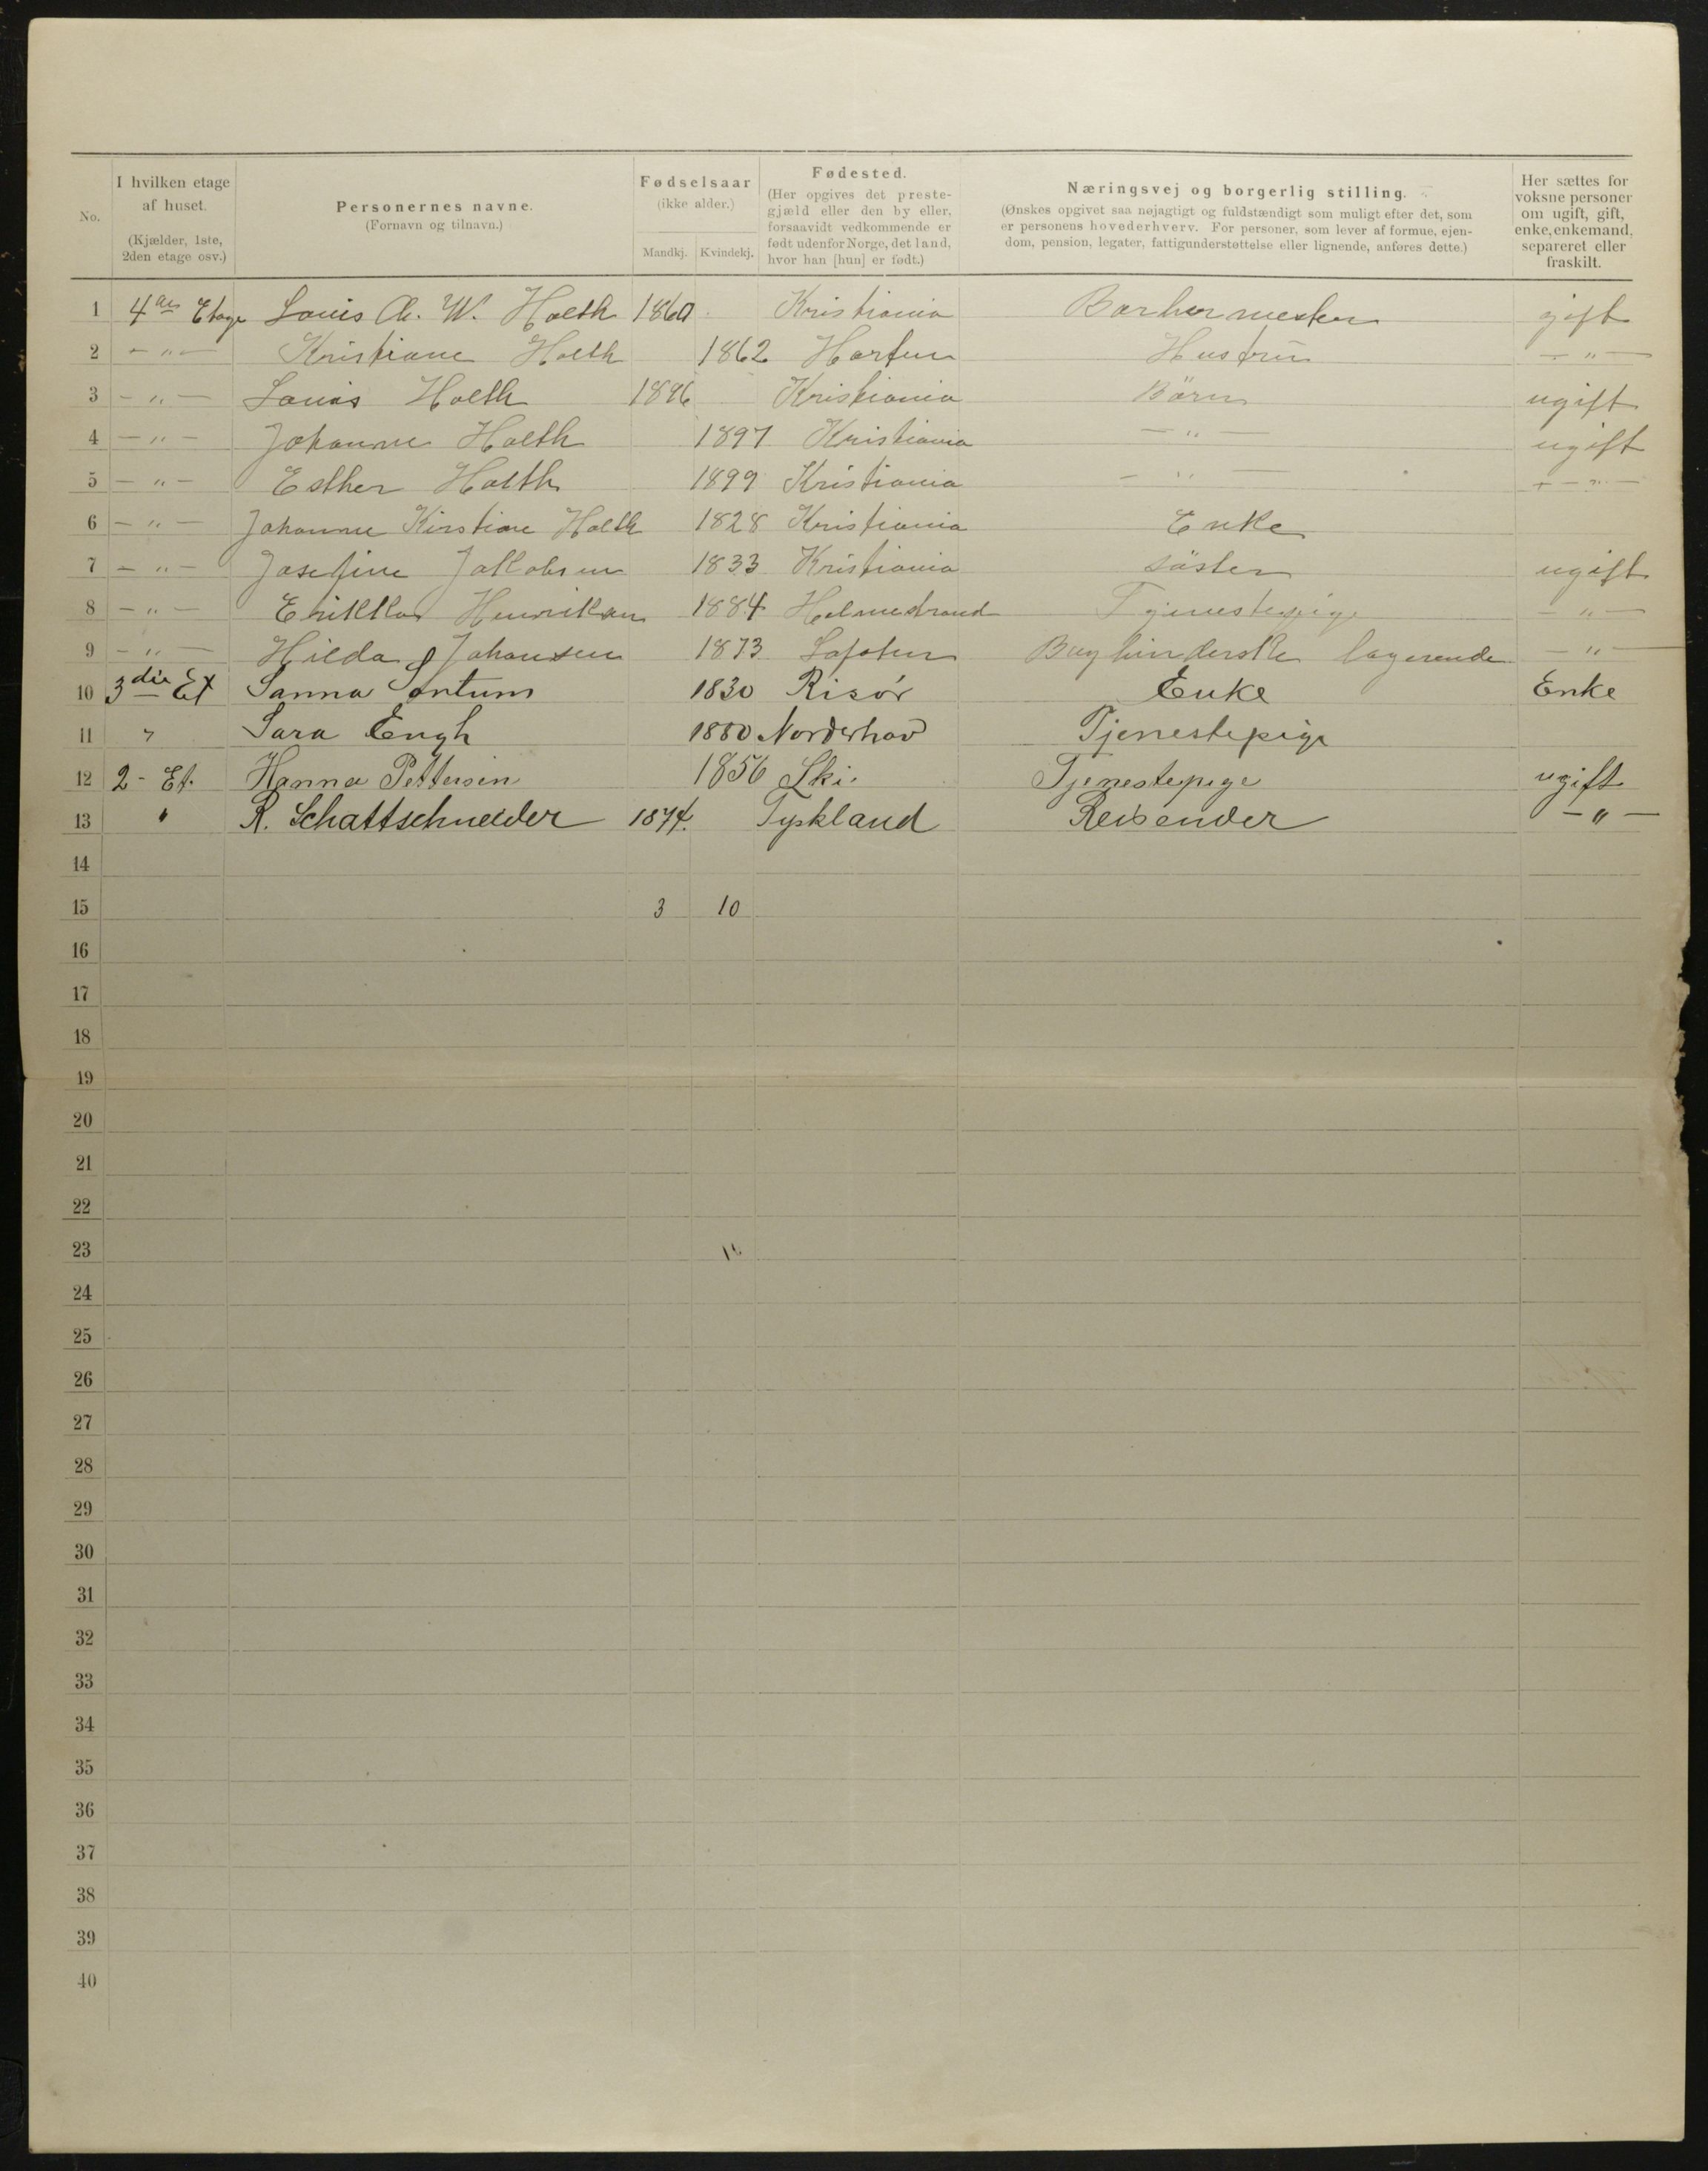 No.
I hvilken etage af huset. (Kjælder, 1ste, 2den etage osv.)
Personernes navne. (Fornavn og tilnavn.)
Fødselsaar (ikke alder.)
Mandkj. Kvindekj.
Fødested. (Her opgives det prestegjæld eller den by eller, forsaavidt vedkommende er født udenfor Norge, det land, hvor han [hun] er født.)
Næringsvej og borgerlig stilling. (Ønskes opgivet saa nøjagtigt og fuldstændigt som muligt efter det, som er personens hovederhverv. For personer, som lever af formue, ejendom, pension, legater, fattigunderstøttelse eller lignende, anføres dette.)
Her sættes for voksne personer om ugift, gift, enke, enkemand, separeret eller fraskilt.
1 4de Etage Louis A. W. Holth 1860 Kristiania Barbermester gift
2 - " - Kristiane Holth 1862 Horten Hustrü - " -
3 - " - Louis Holth 1896 Kristiania Börn ugift
4 - " - Johanne Holth 1897 Kristiania - " - ugift
5 - " - Esther Holth 1899 Kristiania - " - - " -
6 - " - Johanne Kirstine Holth 1828 Kristiania Enke
7 - " - Josefine Jakobsen 1833 Kristiania söster ugift
8 - " - Erikka Henriksen 1884 Holmestrand Tjenestepige - " -
9 - " - Hilda Johansen 1873 Lofoten logerende - " -
10 3die Et Sanna Sontum 1830 Risør Enke Enke
11 " Sara Engh 1880 Norderhov Tjenestepige
12 2 - Et. Hanna Pettersen 1856 Ski. Tjenestepige ugift
13 " R. Schattschneider 1874. Tyskland Reisender - " -
14
15 3 10
16
17
18
19
20
21
22
23
24
25
26
27
28
29
30
31
32
33
34
35
36
37
38
39
40